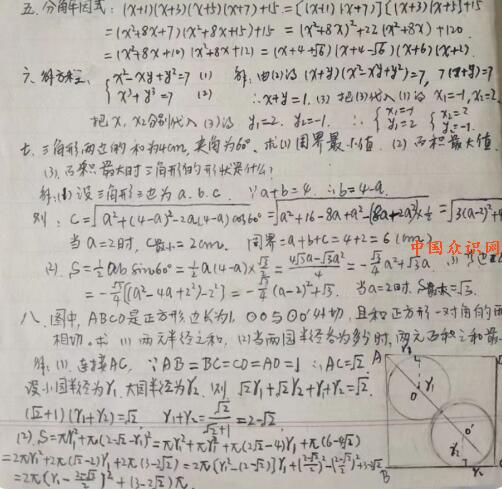 五. 分解因式: (x+1)(x+3)(x+5)(x+7)+15 = [(x+1)(x+7)][(x+3)(x+5)]+15
= (x²+8x+7)(x²+8x+15)+15 = (x²+8x)²+22(x²+8x)+120.
= (x²+8x+10)(x²+8x+12) = (x+4+√6)(x+4-√6)(x+6)(x+2)
六. 解方程: { x²-xy+y²=7 (1) 解: 由(2)得 (x+y)(x²-xy+y²)=7, 7(x+y)=7
x³+y³=7 (2) ∴x+y=1. (3) 把(3)代入(1)得 x₁=-1, x₂=2
把 x₁ x₂分别代入(3)得 y₁=2. y₂=-1. ∴ { x₁=-1 y₁=2 { x₂=2 y₂=-1.
七. 三角形两边的和为4cm, 夹角为60°. 求(1)周界最小值. (2)面积最大值.
(3). 面积最大时三角形的形状是什么?
解:(1)设三角形三边为 a. b. c. ∵a+b=4. ∴b=4-a.
则: C=√a²+(4-a)²-2a(4-a)cos60° =√a²+16-8a+a²-(8a-2a²)×½ =√3(a-2)²+4
当a=2时, C最小=2cm. 周界=a+b+c=4+2=6(cm)
(2). S=½ab sin60°=½a(4-a)×√3/2=(4√3a-√3a²)/4=-√3/4 a²+√3a.
=-√3/4[(a²-4a+2²)-2²]=-√3/4(a-2)²+√3. 当a=2时. S最大=√3.
八. 图中, ABCD是正方形边长为1, ⊙O与⊙O'外切, 且和正方形一对角的两
相切. 求 (1) 两元半径之和, (2)当两圆半径各为多少时, 两元面积之和最
解: (1). 连接AC, ∵AB=BC=CD=AD=1 ∴AC=√2.
设小圆半径为r₁. 大圆半径为r₂. 则 √2r₁+√2r₂+r₁+r₂=√2.
(√2+1)(r₁+r₂)=√2, r₁+r₂=√2/(√2+1)=2-√2.
(2). S=πr₁²+π(2-√2-r₁)²=πr₁²+πr₁²+π(2√2-4)r₁+π(6-4√2)
=2πr₁²+2π(√2-2)r₁+2π(3-2√2)=2π{r₁²-(2-√2)r₁+((2-√2)/2)²-((2-√2)/2)²+3-2√2}
=2π(r₁-(2-√2)/2)²+(3-2√2)π.
A
O
r₁
O'
r₂
B
中国众识网